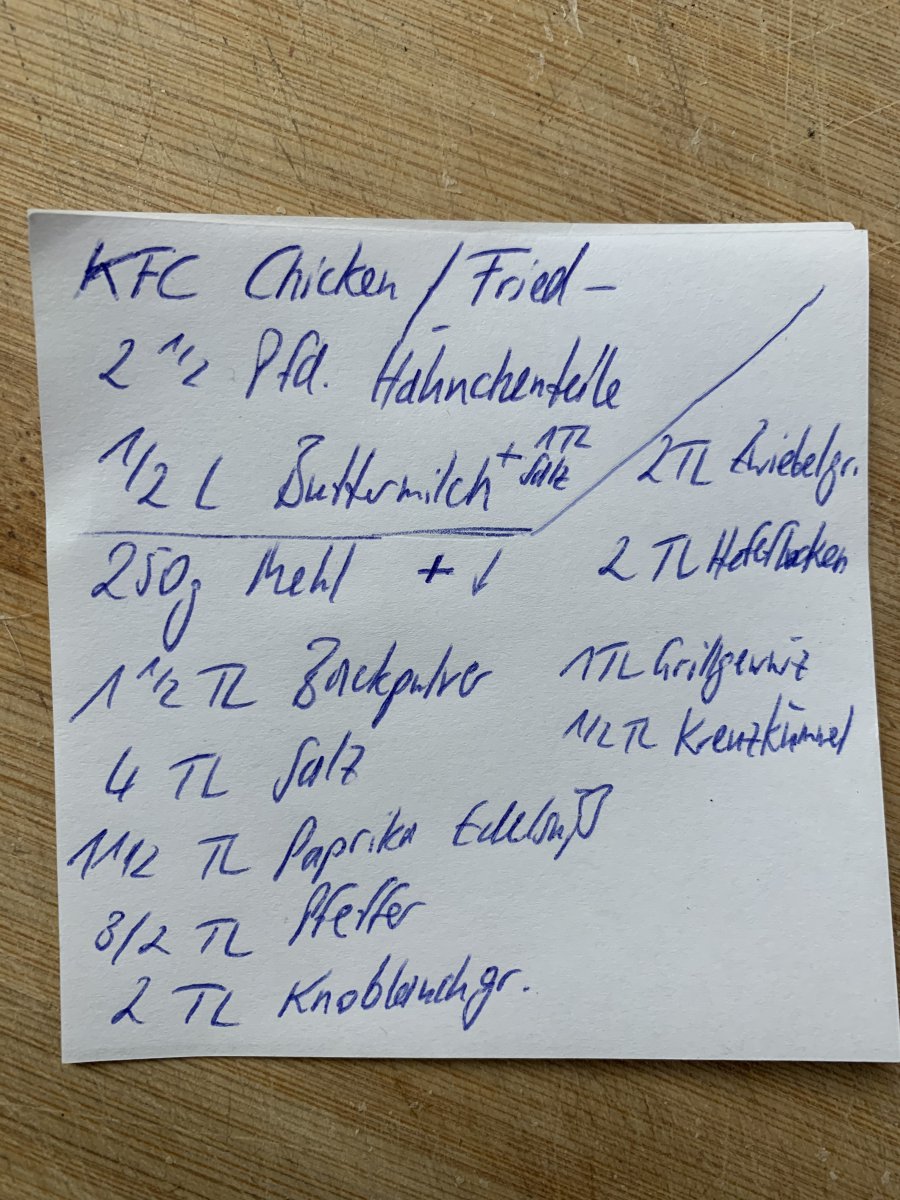 KFC Chicken / Fried –
2 1/2 Pfd. Hähnchenteile
1/2 L Buttermilch + 1TL Salz
250g Mehl + ↓
1 1/2 TL Backpulver
4 TL Salz
1 1/2 TL Paprika Edelsüß
3/2 TL Pfeffer
2 TL Knoblauchgr.
2TL Zwiebelgr.
2 TL Hefeflocken
1TL Grillgewürz
1/2 TL Kreuzkümmel